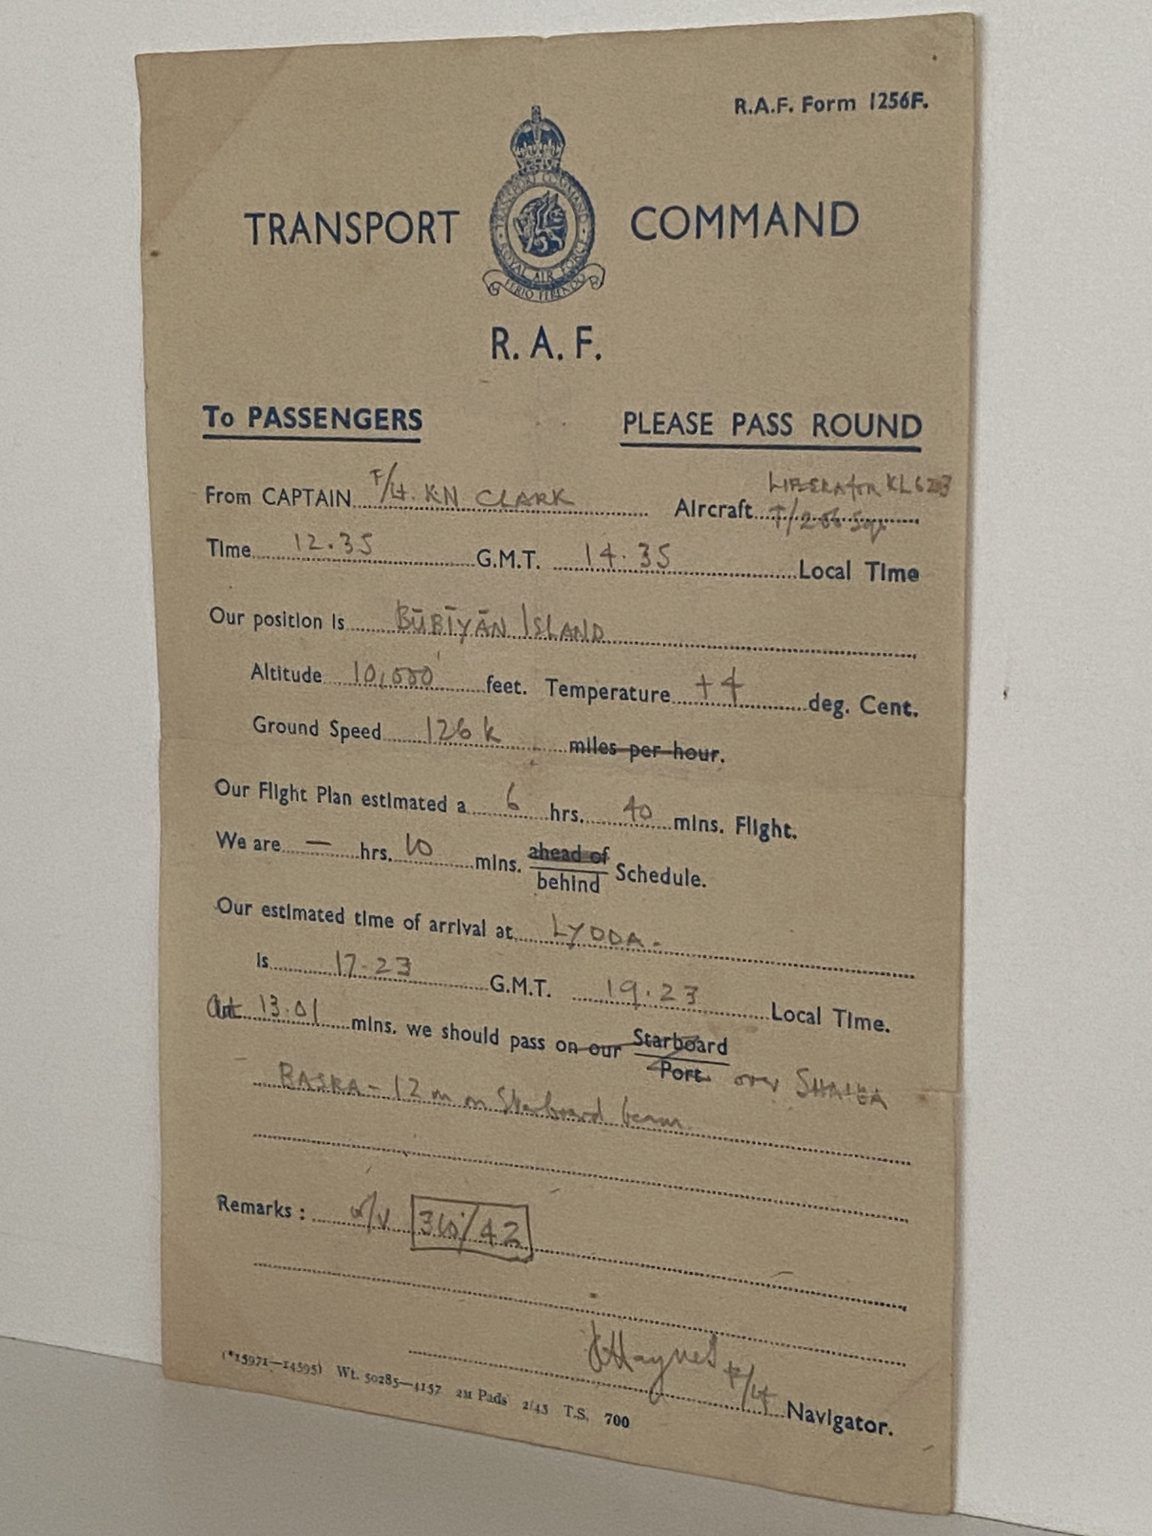 R.A.F. Form 1256F.
TRANSPORT COMMAND
TRANSPORT COMMAND
ROYAL AIR FORCE
FERIO FERENDO
R. A. F.
To PASSENGERS PLEASE PASS ROUND
From CAPTAIN F/Lt. KN CLARK Aircraft LIBERATOR KL6
Time 12.35 G.M.T. 14.35 Local Time
Our position is BŪBĪYĀN ISLAND
Altitude 10,000' feet. Temperature +4 deg. Cent.
Ground Speed 126 k miles per hour.
Our Flight Plan estimated a 6 hrs. 40 mins. Flight.
We are — hrs. 10 mins. ahead of
behind Schedule.
Our estimated time of arrival at LYDDA.
is 17.23 G.M.T. 19.23 Local Time.
At 13.01 mins. we should pass on our Starboard
Port over SHAIBA
BASRA - 12 m on Starboard beam
Remarks : w/v 360°/42
Haynes F/Lt Navigator.
(*15971—14595) Wt. 50285—4157 2M Pads 2/45 T.S. 700